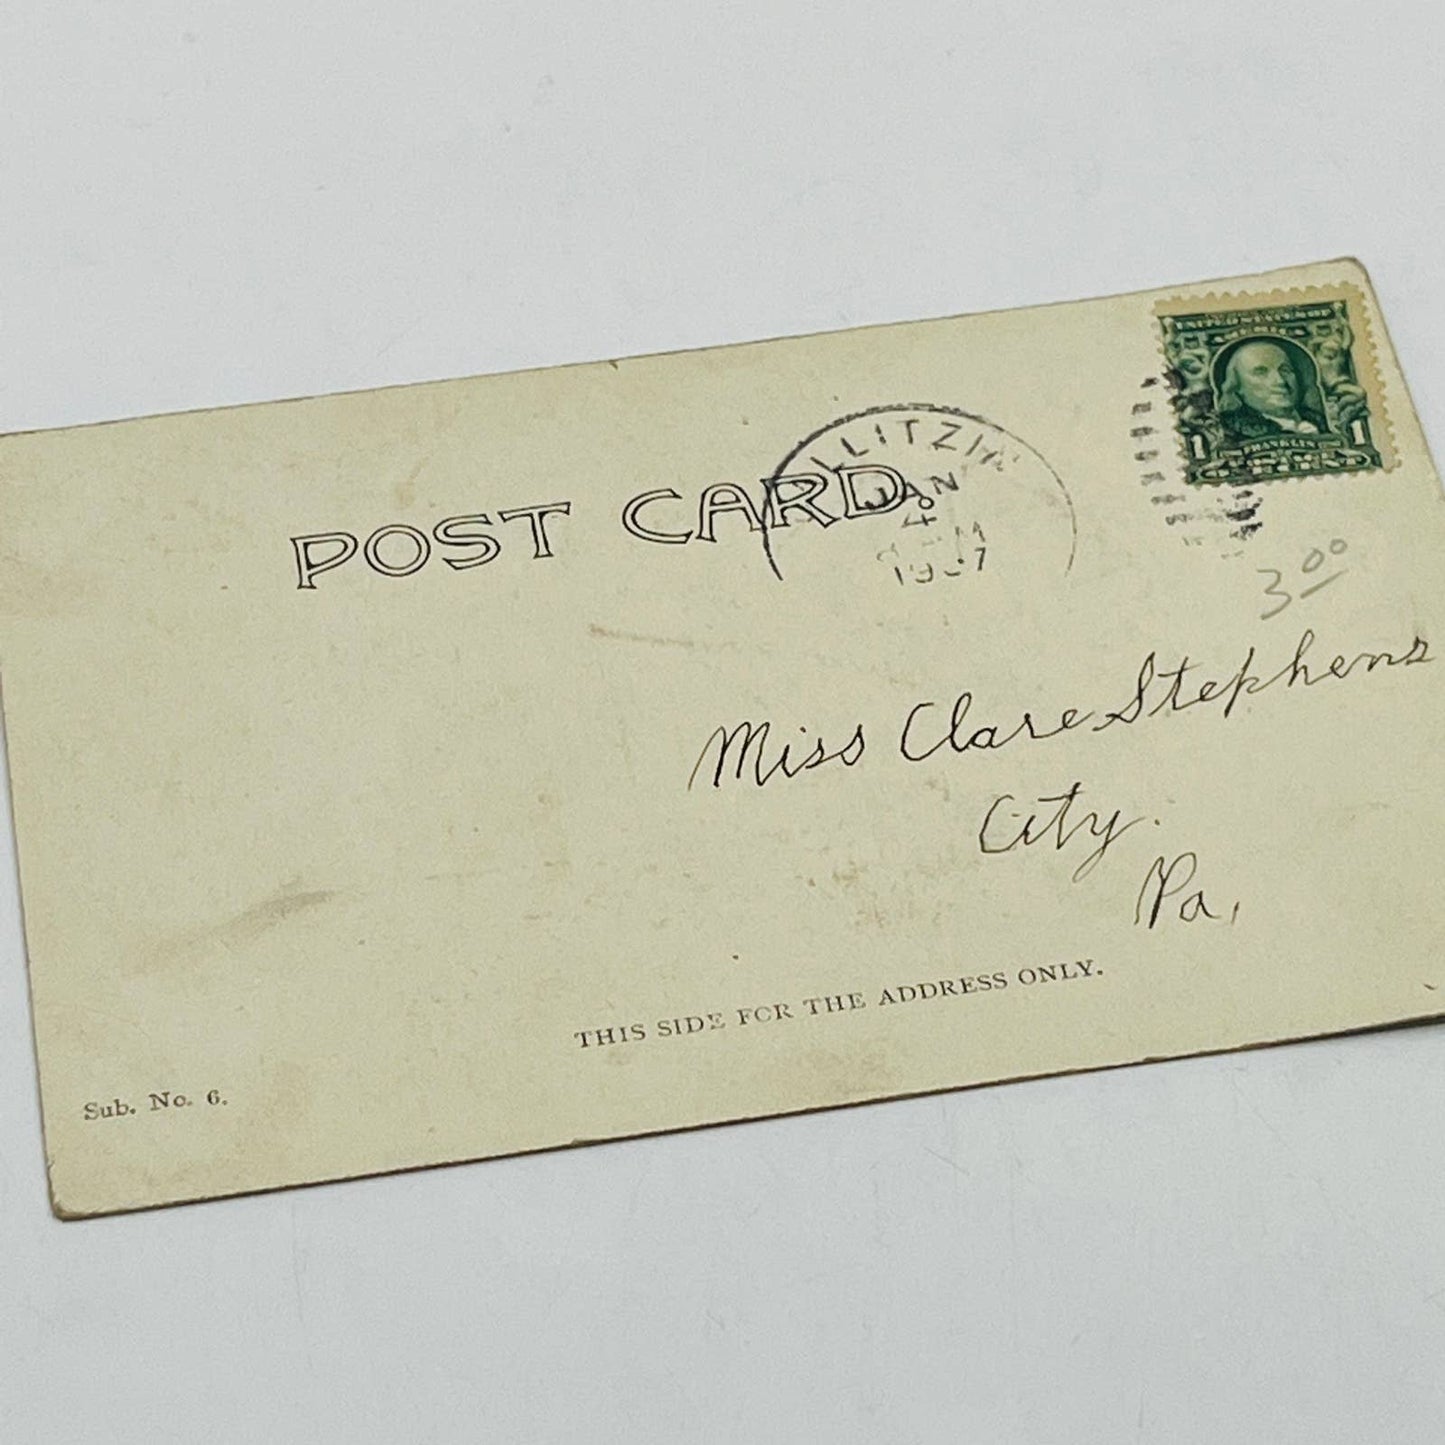 UNITED STATES OF
AMERICA
FRANKLIN
1 1
POST CARD.
JAN
4
1907
3.00
Miss Clare Stephens
City.
Pa,
THIS SIDE FOR THE ADDRESS ONLY.
Sub. No. 6.